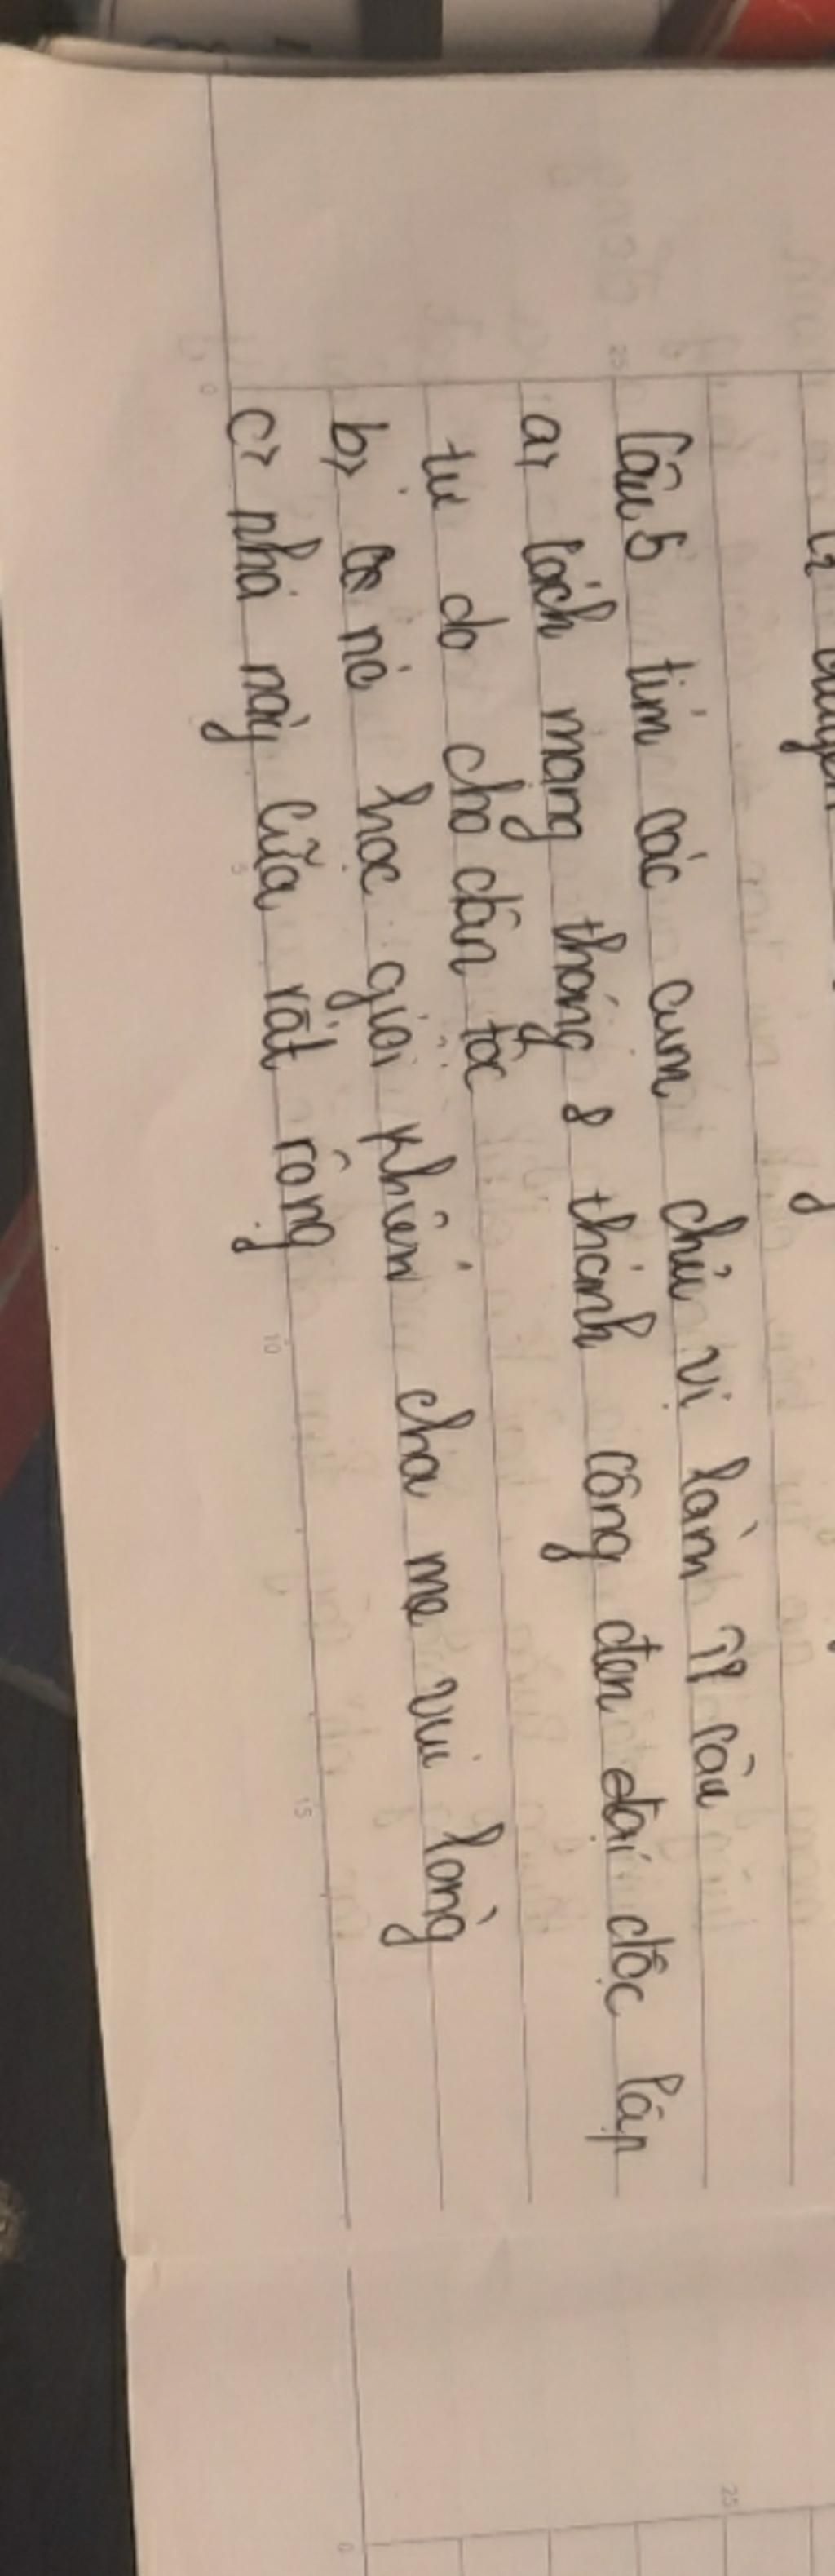 Câu 5 tìm các cụm chủ vị làm TP câu
a, Cách mạng tháng 8 thành công đen đại độc lập
tự do cho dân tộc
b, nó học giỏi khiến cha mẹ vui lòng
c, nhà này cửa rất rộng